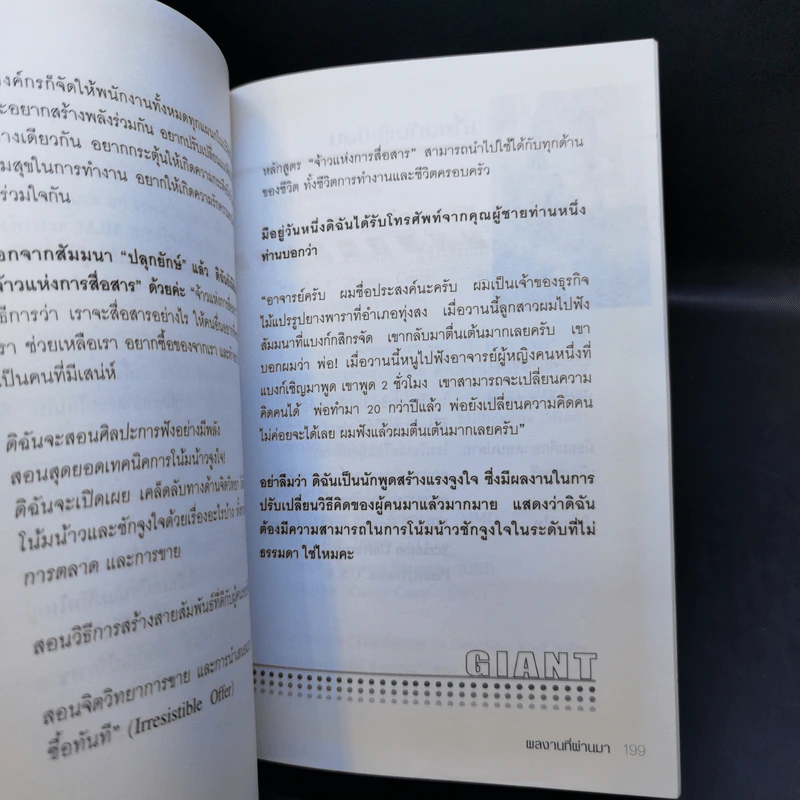 องค์กรก็จัดให้พนักงานทั้งหมดทุกแผนก
อยากสร้างพลังร่วมกัน อยากปรับเปลี่ยน
างเดียวกัน อยากกระตุ้นให้เกิดความ
มสุขในการทำงาน อยากให้เกิดความรัก
ร่วมใจกัน
อกจากสัมมนา “ปลุกยักษ์” แล้ว ดิฉัน
จ้าวแห่งการสื่อสาร” ด้วยค่ะ “จ้าวแห่งการสื่อ
ธีการว่า เราจะสื่อสารอย่างไร ให้คนอื่น
รา ช่วยเหลือเรา อยากซื้อของจากเรา และ
เป็นคนที่มีเสน่ห์
ดิฉันจะสอนศิลปะการฟังอย่างมีพลัง
สอนสุดยอดเทคนิคการโน้มน้าวจูงใจ!
ดิฉันจะเปิดเผย เคล็ดลับทางด้านจิตวิทยา
โน้มน้าวและชักจูงใจด้วยเรื่องอะไรบ้าง
การตลาด และการขาย
สอนวิธีการสร้างสายสัมพันธ์ที่ดีกับ
สอนจิตวิทยาการขาย และการนำเสนอ
ซื้อทันที” (Irresistible Offer)
หลักสูตร “จ้าวแห่งการสื่อสาร” สามารถนำไปใช้ได้กับทุกด้าน
ของชีวิต ทั้งชีวิตการทำงานและชีวิตครอบครัว
มีอยู่วันหนึ่งดิฉันได้รับโทรศัพท์จากคุณผู้ชายท่านหนึ่ง
ท่านบอกว่า
“อาจารย์ครับ ผมชื่อประสงค์นะครับ ผมเป็นเจ้าของธุรกิจ
ไม้แปรรูปยางพาราที่อำเภอทุ่งสง เมื่อวานนี้ลูกสาวผมไปฟัง
สัมมนาที่แบงก์กสิกรจัด เขากลับมาตื่นเต้นมากเลยครับ เขา
บอกผมว่า พ่อ! เมื่อวานนี้หนูไปฟังอาจารย์ผู้หญิงคนหนึ่งที่
แบงก์เชิญมาพูด เขาพูด 2 ชั่วโมง เขาสามารถจะเปลี่ยนความ
คิดคนได้ พ่อทำมา 20 กว่าปีแล้ว พ่อยังเปลี่ยนความคิดคน
ไม่ค่อยจะได้เลย ผมฟังแล้วผมตื่นเต้นมากเลยครับ”
อย่าลืมว่า ดิฉันเป็นนักพูดสร้างแรงจูงใจ ซึ่งมีผลงานในการ
ปรับเปลี่ยนวิธีคิดของผู้คนมาแล้วมากมาย แสดงว่าดิฉัน
ต้องมีความสามารถในการโน้มน้าวชักจูงใจในระดับที่ไม่
ธรรมดา ใช่ไหมคะ
GIANT
ผลงานที่ผ่านมา 199